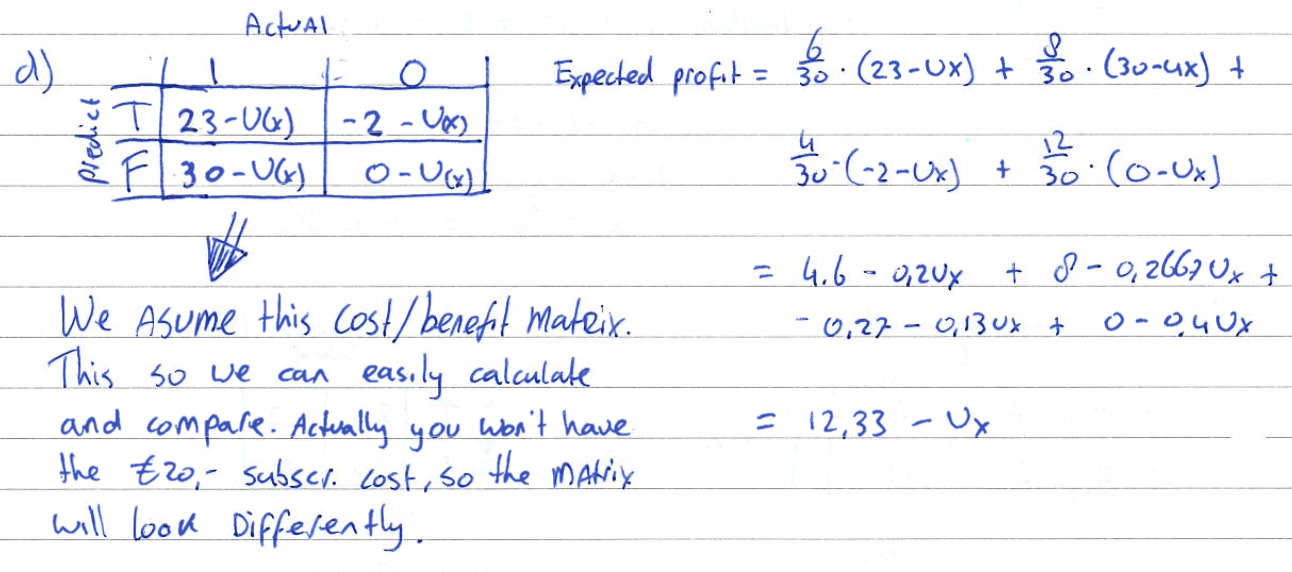 d)
Actual
1 0
Predict
T 23-U(x) -2 - U(x)
F 30-U(x) 0-U(x)
We Asume this cost/benefit matrix.
This so we can easily calculate
and compare. Actually you won't have
the €20,- subscr. cost, so the matrix
will look Differently.
Expected profit = 6/30 · (23-Ux) + 8/30 · (30-Ux) +
4/30 · (-2-Ux) + 12/30 · (0-Ux)
= 4.6 - 0,2Ux + 8 - 0,2667Ux +
- 0,27 - 0,13Ux + 0 - 0,4Ux
= 12,33 - Ux